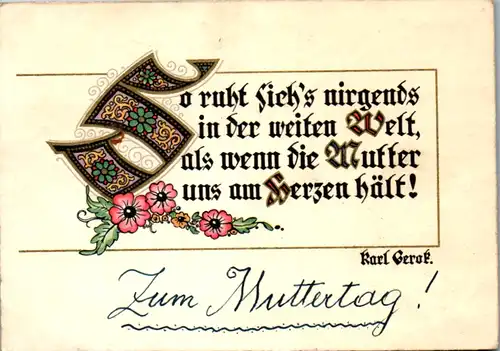 So ruht sich's nirgends
in der weiten Welt,
als wenn die Mutter
uns am Herzen hält!
Karl Gerok.
Zum Muttertag!